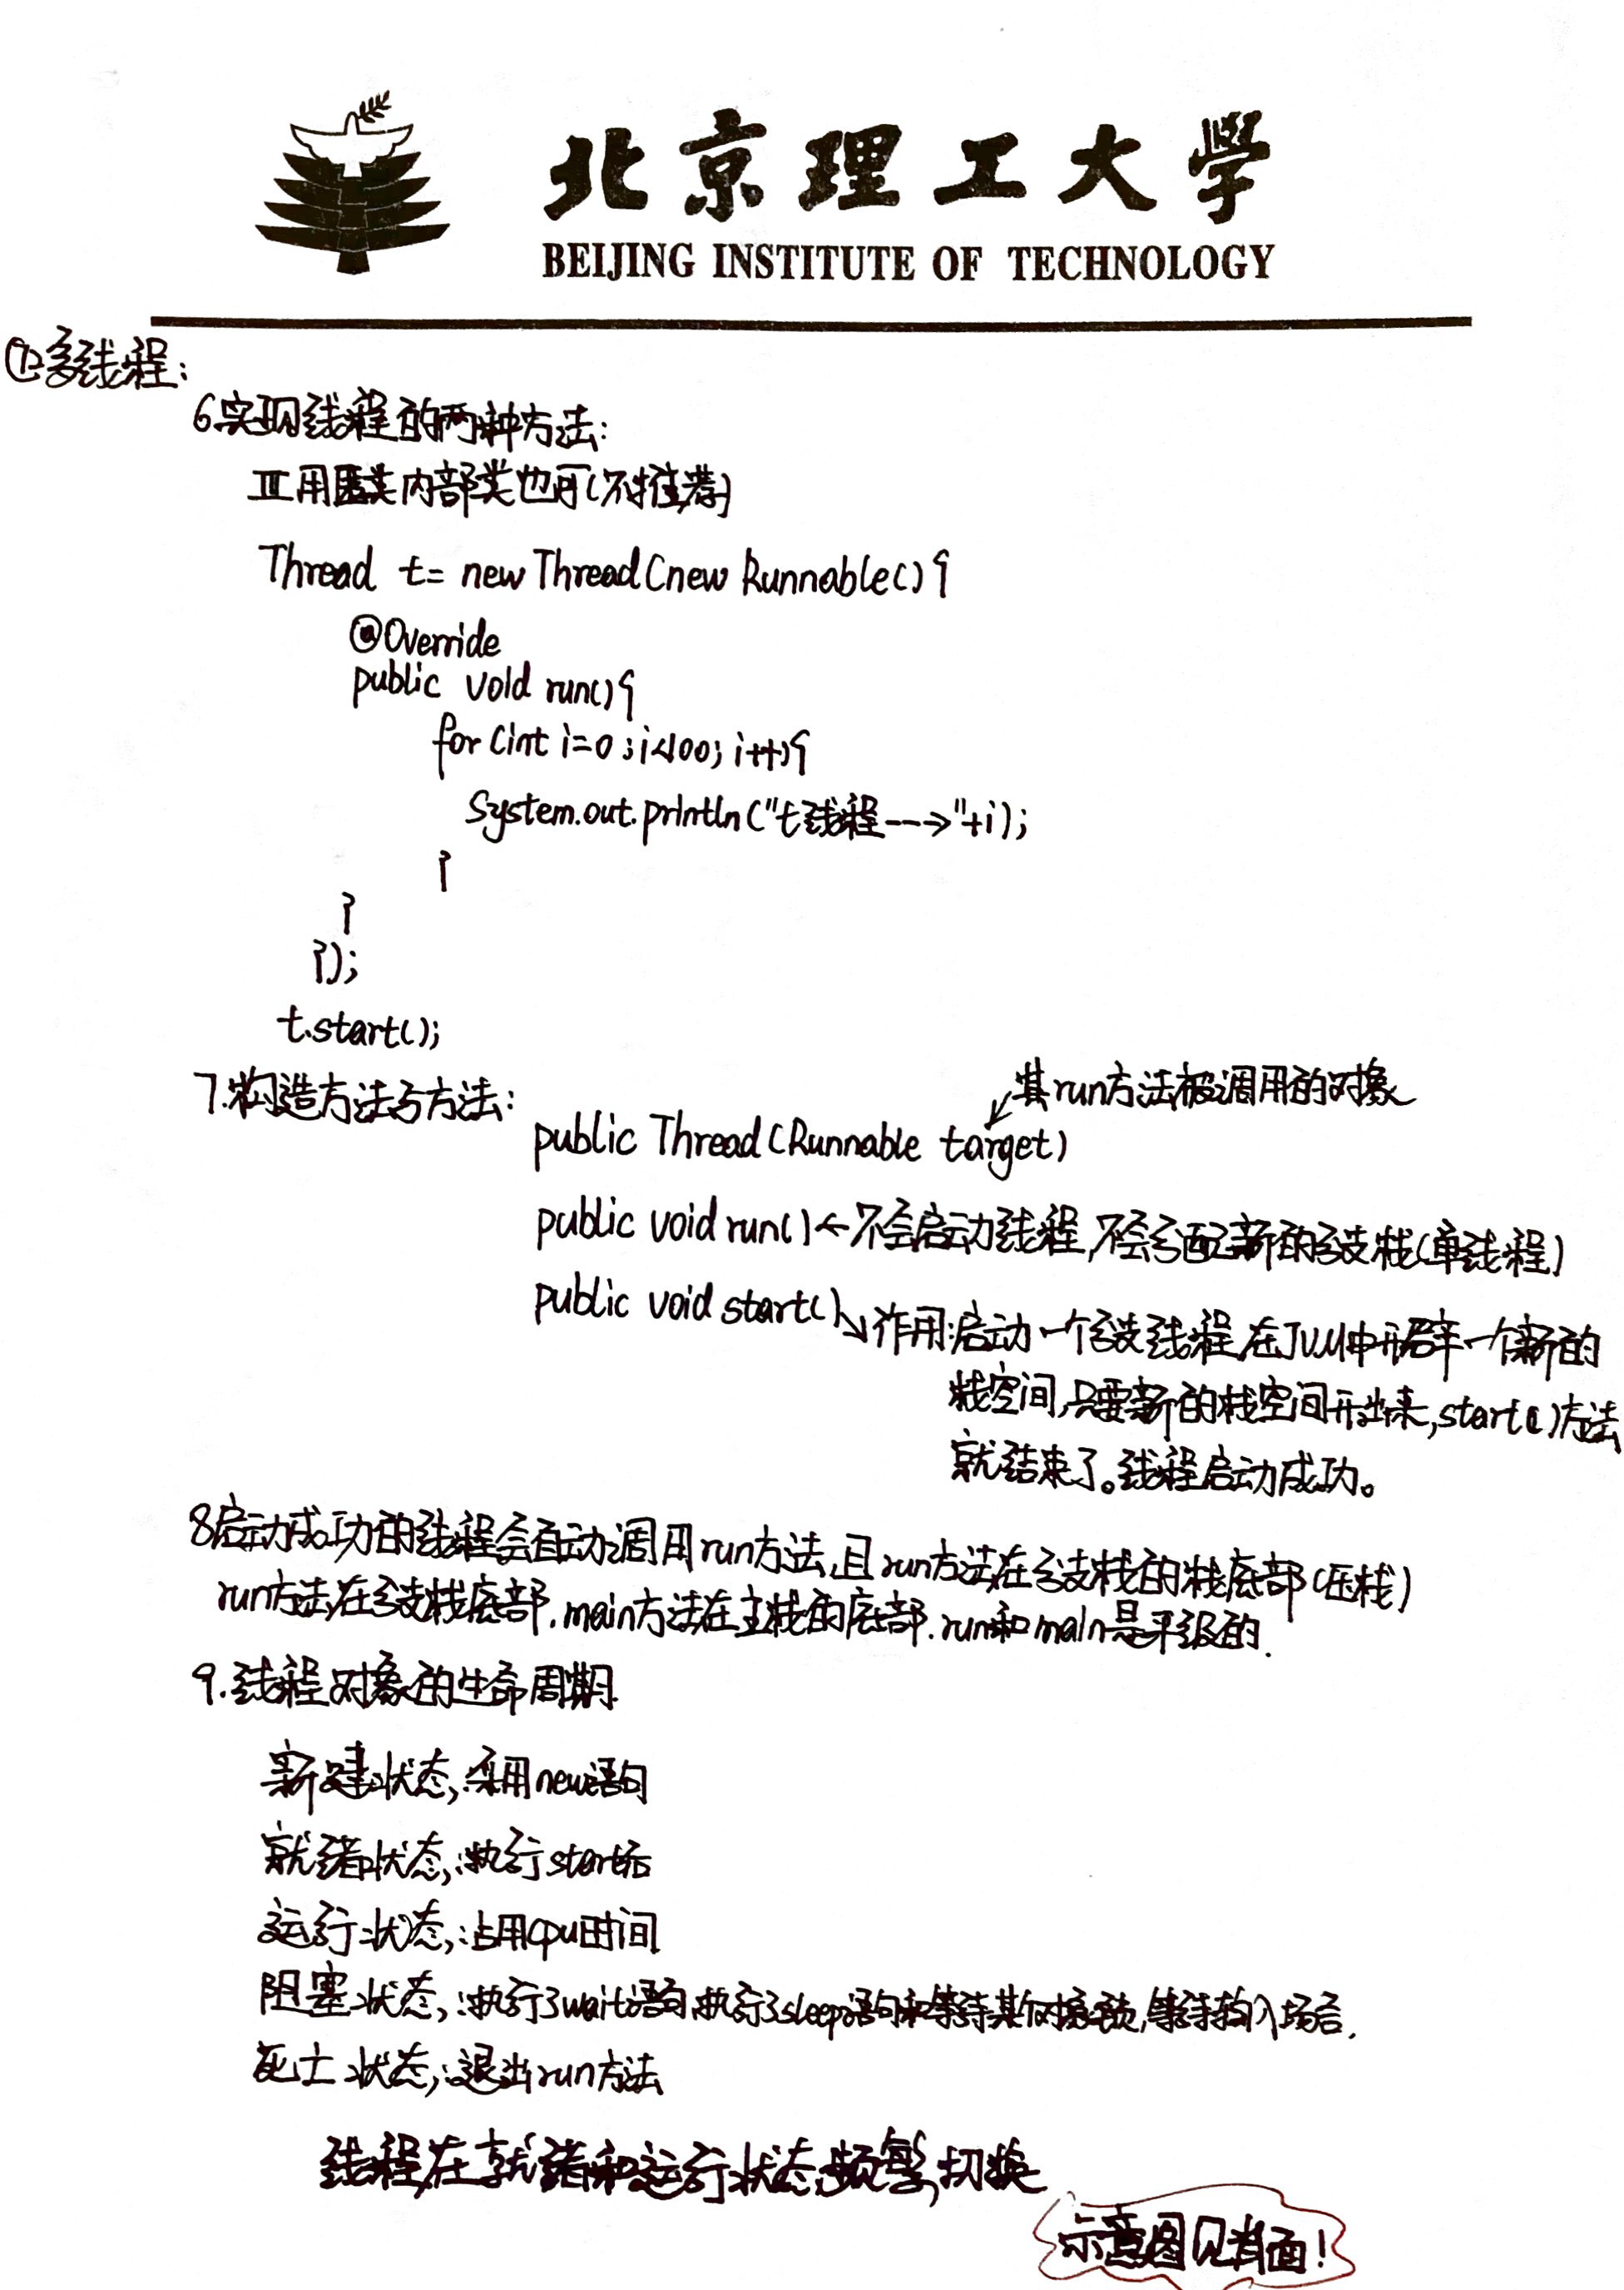 北京理工大学
BEIJING INSTITUTE OF TECHNOLOGY
①多线程:
6.实现线程的两种方法:
III用匿名内部类也可(不推荐)
Thread t= new Thread(new Runnable(){
@Override
public void run(){
for(int i=0;i<100;i++){
System.out.println("t线程--->"+i);
}
}
});
t.start();
7.构造方法与方法:
其run方法被调用的对象
public Thread(Runnable target)
public void run()←不会启动线程,不会分配新的分支栈(单线程)
public void start()↘作用:启动一个分支线程,在JVM中开辟一个新的
栈空间,只要新的栈空间开出来,start()方法
就结束了。线程启动成功。
8启动成功的线程会自动调用run方法,且run方法在分支栈的栈底部(压栈)
run方法在分支栈底部.main方法在主栈的底部.run和main是平级的.
9.线程对象的生命周期
新建状态,:采用new语句
就绪状态,:执行start后
运行状态,:占用cpu时间
阻塞状态,:执行了wait语句,执行了sleep语句和等待某个对象锁,等待输入场合.
死亡状态,:退出run方法
线程在就绪和运行状态频繁切换
示意图见背面!